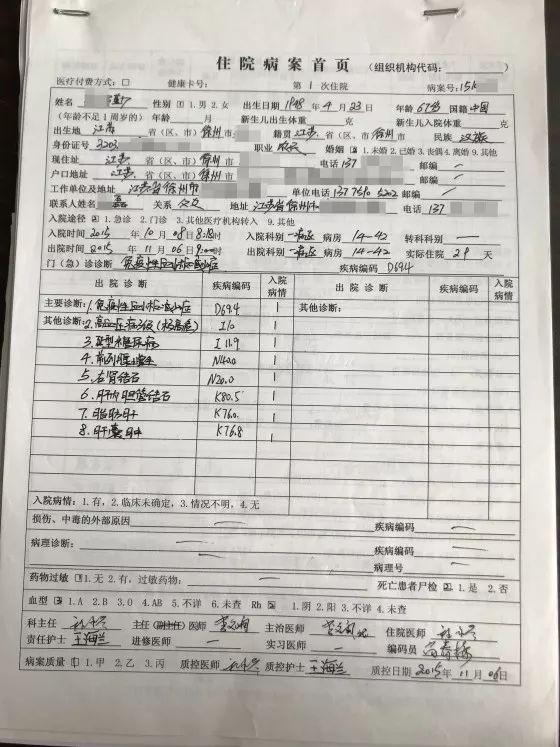 住院病案首页 （组织机构代码：）
医疗付费方式：□ 健康卡号： 第 1 次住院 病案号：15
姓名 性别 1.男 2.女 出生日期 1948 年 4 月 23 日 年龄 67岁 国籍 中国
（年龄不足1周岁的）年龄 月 新生儿出生体重 克 新生儿入院体重 克
出生地 江苏 省（区、市）徐州 市 籍贯 江苏 省（区、市）徐州 市 民族 汉族
身份证号 3203 职业 农民 婚姻 1.未婚 2.已婚 3.丧偶 4.离婚 9.其他
现住址 江苏 省（区、市）徐州 市 电话 137 邮编 /
户口地址 江苏 省（区、市）徐州 市 邮编 /
工作单位及地址 江苏省徐州市 单位电话 137 邮编 /
联系人姓名 关系 地址 江苏省徐州市 电话 137
入院途径 1.急诊 2.门诊 3.其他医疗机构转入 9.其他
入院时间 2015 年 10 月 08 日 时 入院科别 一病区 病房 14-42 转科科别 —
出院时间 2015 年 11 月 06 日 时 出院科别 一病区 病房 14-42 实际住院 29 天
门（急）诊诊断 免疫性血小板减少症 疾病编码 D69.4
出院诊断 疾病编码 入院病情 出院诊断 疾病编码 入院病情
主要诊断：1.免疫性血小板减少症 D69.4 1 其他诊断：
其他诊断：2.高血压病3级（极高危） I10 1
3. 型糖尿病 I11.9 1
4.前列腺增生 N40.0 1
5.右肾结石 N20.0 1
6.肝内胆管结石 K80.5 1
7.脂肪肝 K76.0 1
8.肝囊肿 K76.8 1
入院病情：1.有，2.临床未确定，3.情况不明，4.无
损伤、中毒的外部原因 — 疾病编码 —
病理诊断： — 疾病编码 —
— 病理号 —
药物过敏 1.无 2.有，过敏药物： — 死亡患者尸检 1.是 2.否
血型 1.A 2.B 3.O 4.AB 5.不详 6.未查 Rh 1.阴 2.阳 3.不详 4.未查
科主任 主任（副主任）医师 主治医师 住院医师
责任护士 王海兰 进修医师 — 实习医师 — 编码员
病案质量 1.甲 2.乙 3.丙 质控医师 质控护士 王海兰 质控日期 2015 年 11 月 06 日